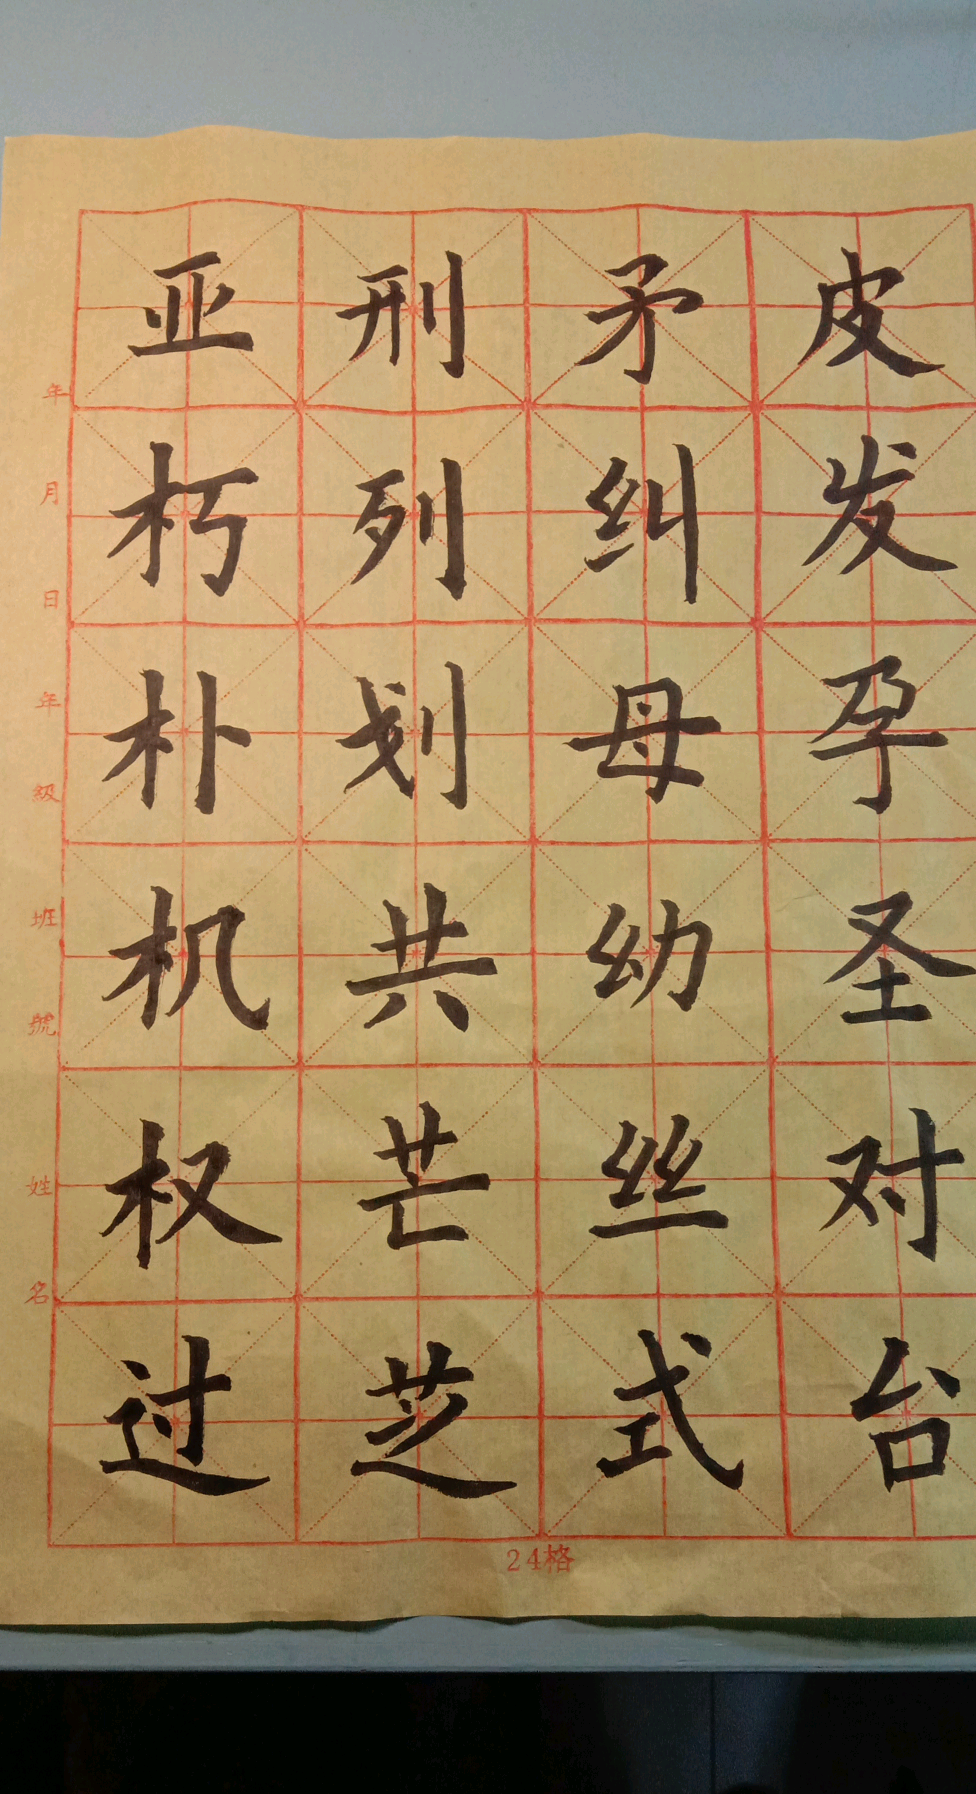 皮发孕圣对台
矛纠母幼丝式
刑列划共芒芝
亚朽朴机权过
年月日年級班號姓名
24格